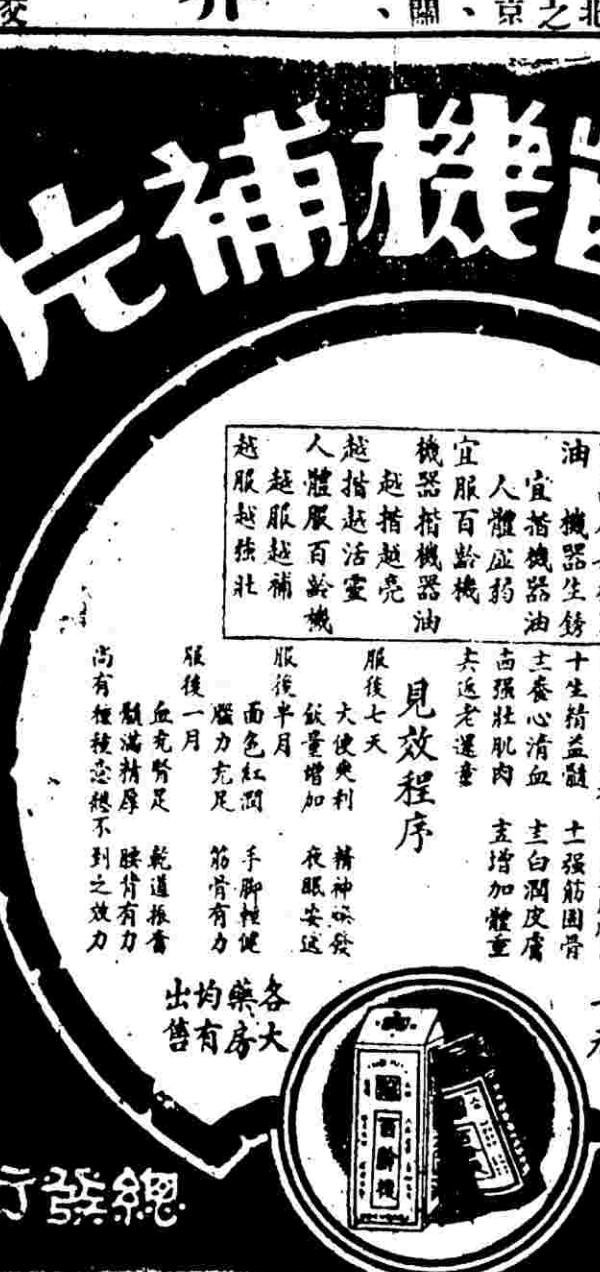 北之京、關、
機補片
油 機器生銹
宜揩機器油
人體虛弱
宜服百齡機
機器揩機器油
越揩越亮
越揩越活靈
人體服百齡機
越服越補
越服越強壯
十生精益髓 十一强筋固骨
十二養心清血 十三白潤皮膚
十四强壯肌肉 十五增加體重
十六返老還童
見效程序
服後七天
大便爽利 精神煥發
飲量增加 夜眠安适
服後半月
面色紅潤 手脚輕健
腦力充足 筋骨有力
服後一月
血充腎足 乾道振奮
髓滿精厚 腰背有力
尚有種種意想不到之效力
各大
藥房
均有
出售
百齡機
總發行